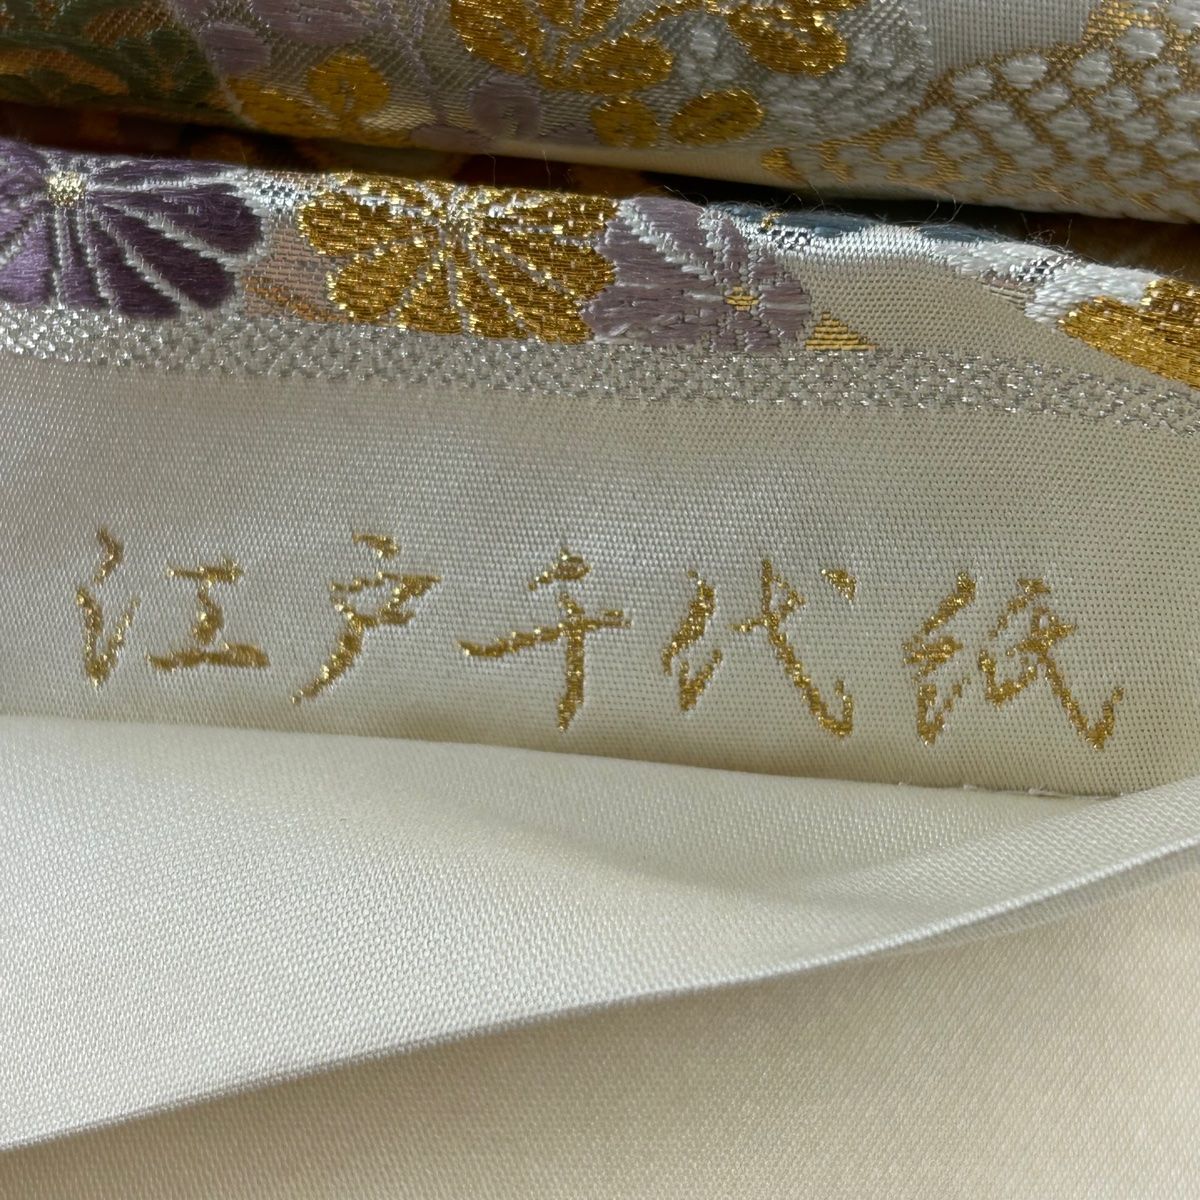 江戸千代紙